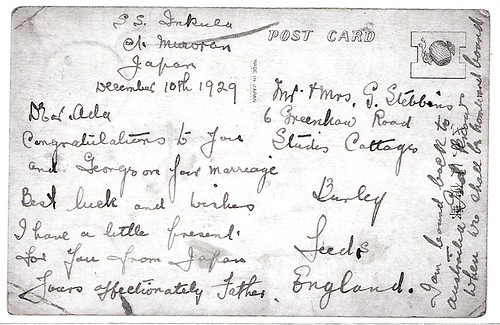 S.S. Inkula
at Muroran
Japan
December 10th 1929
Dear Ada
Congratulations to you
and George on your marriage
Best luck and wishes
I have a little present
for you from Japan
Yours affectionately Father.
POST CARD
MADE IN JAPAN
Mr & Mrs. G. Stebbins
6 Greenhow Road
Studis Cottages
Burley
Leeds
England.
I am bound back to
Australia
When we shall be homeward bound